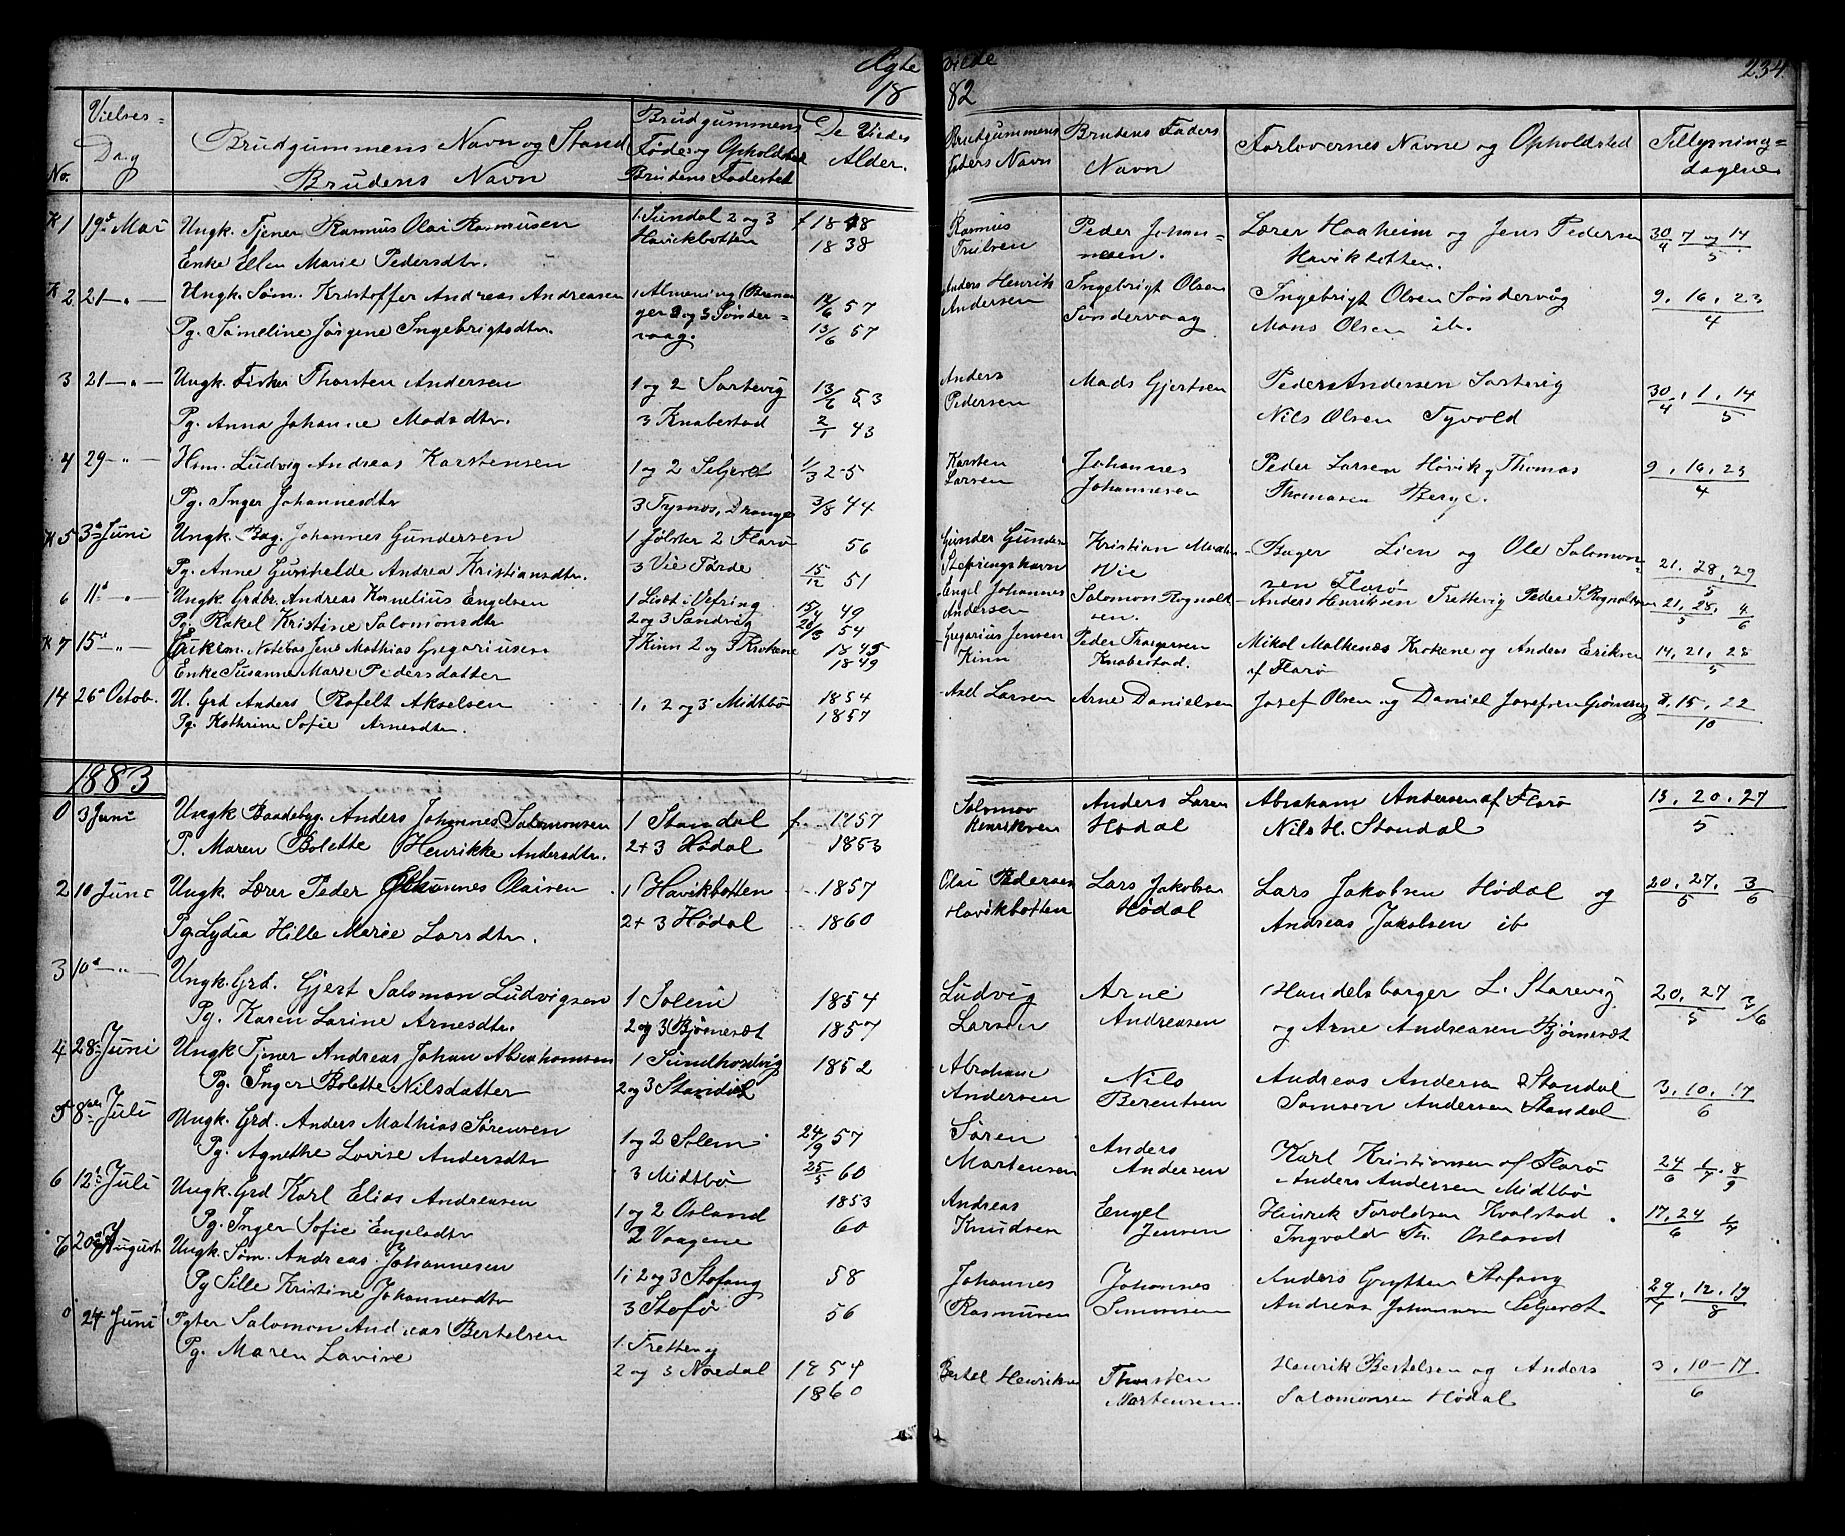 Ægte viede 234
1882
No.
Vielses-
Dag
Brudgummens Navn og Stand
Brudens Navn
Brudgummens
Føde og Opholdsted
Brudens Fødested
De Viedes
Alder.
Brudgummens
Faders Navn
Brudens Faders
Navn
Forlovernes Navne og Opholdsted
Tillysnings=
dagene
K 1 19de Mai Ungk. Tjener Rasmus Olai Rasmusen 1. Sundal 2 og 3 f 1848 Rasmus Peder Johan- Lærer Haaheim og Jens Pedersen 30/4 7 og 14/5
Enke Ellen Marie Pedersdtr. Havikbotten 1838 Truelsen nesen. Havikbotten.
K 2 21 — " — Ungk. Søm. Kristoffer Andreas Andreasen 1 Almening (Breman- 12/6 57 Anders Henrik Ingebrigt Olsen Ingebrigt Olsen Søndervåg 9, 16, 23/4
Pg. Sameline Jørgene Ingebrigtsdtr. ger 2 og 3 Sønder- vaag. 13/6 57 Andersen Søndervaag Mons Olsen ib.
3 21 — " — Ungk. Fisker Thorsten Andersen 1 og 2 Sortevig 13/6 53 Anders Mads Gjertsen Peder Andersen Sortevig 30/4, 1, 14/5
Pg. Anna Johanne Madsdtr. 3 Knabestad 2/1 43 Pedersen Nils Olsen Tyvold
4 29 — " — Hsm. Ludvig Andreas Karstensen 1 og 2 Seljeset 1/3 25 Karsten Johannes Peder Larsen Høvik og Thomas 9, 16, 23/4
Pg. Inger Johannesdtr 3 Tysnes, Drange 3/8 44 Larsen Johannesen Thomasen Berge.
K 5 3de Juni Ungk. Bag. Johannes Gundersen 1 Jølster 2 Florø 56 Gunder Gunders Kristian Mads- Bager Lien og Ole Salomon- 21, 28, 29/5
Pg. Anne Gurihelde Andrea Kristiansdtr. 3 Vie Førde 15/12 51 Stefringshavn Vie sen Florø
6 11te — " Ungk. Grdbr. Andreas Kornelius Engelsen 1 Liset i Vefring 15/4 49 Engel Johannes Salomon Rognald- Anders Henriksen Trettevig Peder S. Rognaldsen 21, 28/5, 4/6
Pg. Rakel Kristine Salomonsdtr 2 og 3 Sandvig 20/3 54 Andersen sen.
K 7 15de — " — Enkem. Notebas Jens Mathias Gregoriusen 1 Kinn 2 og 3 Krokene 1845 Gregorius Jensen Peder Mikal Malkenæs Krokene og Anders Eriksen 14, 21, 28/5
Enke Susanne Marie Pedersdatter 1849 Kinn Knabestad. af Florø
14 26de Octob. U. Grd Anders Rafelt Akselsen 1, 2 og 3 Midtbø 1854 Axel Larsen Arne Danielsen Josef Olsen og Daniel Josefsen Grønevig 8, 15, 22/10
Pg. Kathrine Sofie Arnesdtr. 1857
1883
0 3 Juni Ungk Baadebyg. Anders Johannes Salomonsen 1 Standal f. 1857 Salomon Anders Larsen Abraham Andersen af Florø 13, 20, 27/5
P. Maren Bolette Henrikke Andersdtr. 2+3 Hødal 1853 Henriksen Hødal Nils H. Standal
2 10 Juni Ungk Lærer Peder Johannes Olaisen 1 Havikbotten 1857 Olai Pedersen Lars Jakobsen Lars Jakobsen Hødal og 20, 27/5, 3/6
Pg. Lydia Hille Marie Larsdtr. 2+3 Hødal 1860 Havikbotten Hødal Andreas Jakobsen ib
3 10de — " — Ungk. Grd. Gjert Salomon Ludvigsen 1 Solem 1854 Ludvig Arne Handelsborger L. Starevig 20, 27/5 3/6
Pg. Karen Larine Arnesdtr. 2 og 3 Bjørneset 1857 Larsen Andreasen og Arne Andreasen Bjørneset
4 28de Juni Ungk Tjener Andreas Johan Abrahamsen 1 Sundhordvig 1852 Abraham Nils Andreas Andersen Standal 3, 10, 17/6
Pg. Inger Bolette Nilsdatter 2 og 3 Standal Andersen Berentsen Samsen Andersen Standal
5 8de Juli Ungk. Grd. Anders Mathias Sørensen 1 og 2 Solem 24/9 57 Søren Anders Karl Kristiansen af Florø 24/6 1/7 8/9
Pg. Agnethe Lovise Andersdtr 3 Midtbø 25/5 60 Martensen Andersen Anders Andersen Midtbø
6 12te Juli Ungk. Grd Karl Elias Andreasen 1 og 2 Osland 1853 Andreas Engel Henrik Toroldsen Kvalstad 17, 24/6 1/7
Pg. Inger Sofie Engelsdtr 2 Vaagene 60 Knudsen Jensen Ingvald Th. Osland
6 20de August Ungk. Søm. Andreas Johannesen 1, 2 og 3 Stofang 58 Johannes Johannes Anders Grytten Stofang 29/7, 12, 19/8
Pg Sille Kristine Johannesdtr 3 Stofø 56 Rasmusen Simonsen Andreas Johannesen Seljeset
0 24 Juni Pgter Salomon Andreas Bertelsen 1. Tretten og 1854 Bertel Henriksen Thorsten Henrik Bertelsen og Anders 3, 10 - 17/6
Pg. Maren Lavine 2 og 3 Nordal 1860 Martensen. Salomonsen Hødal